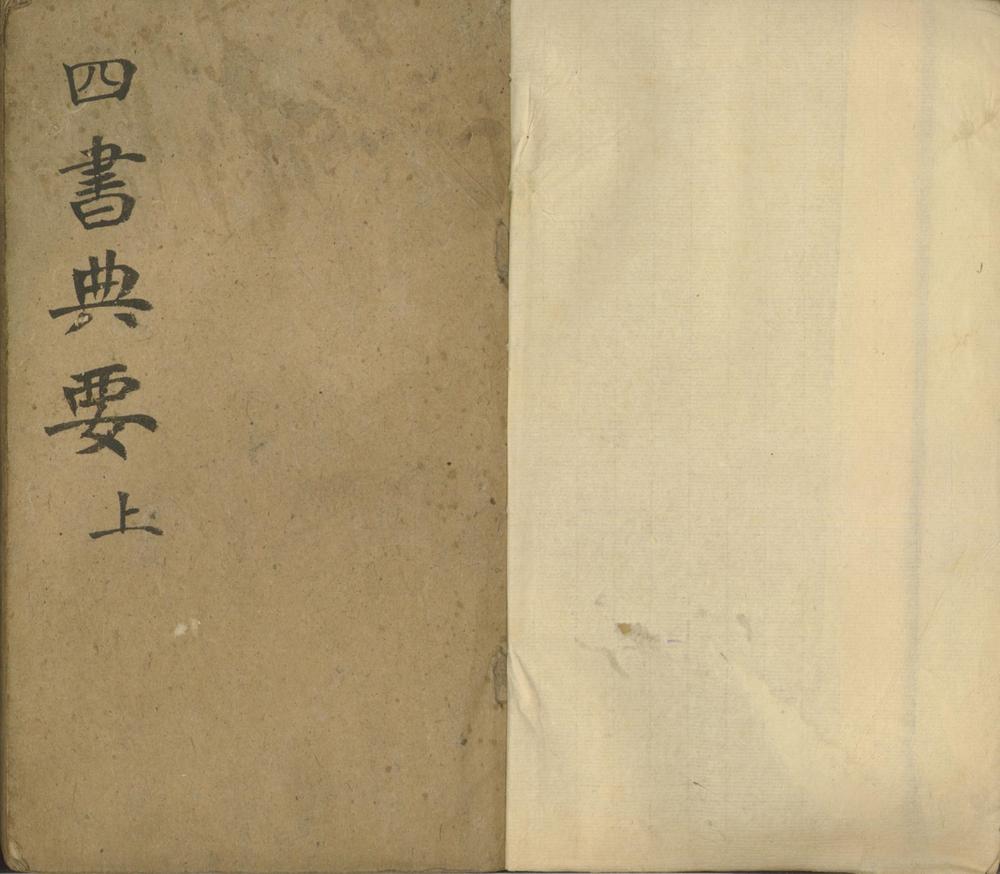 四書典要上